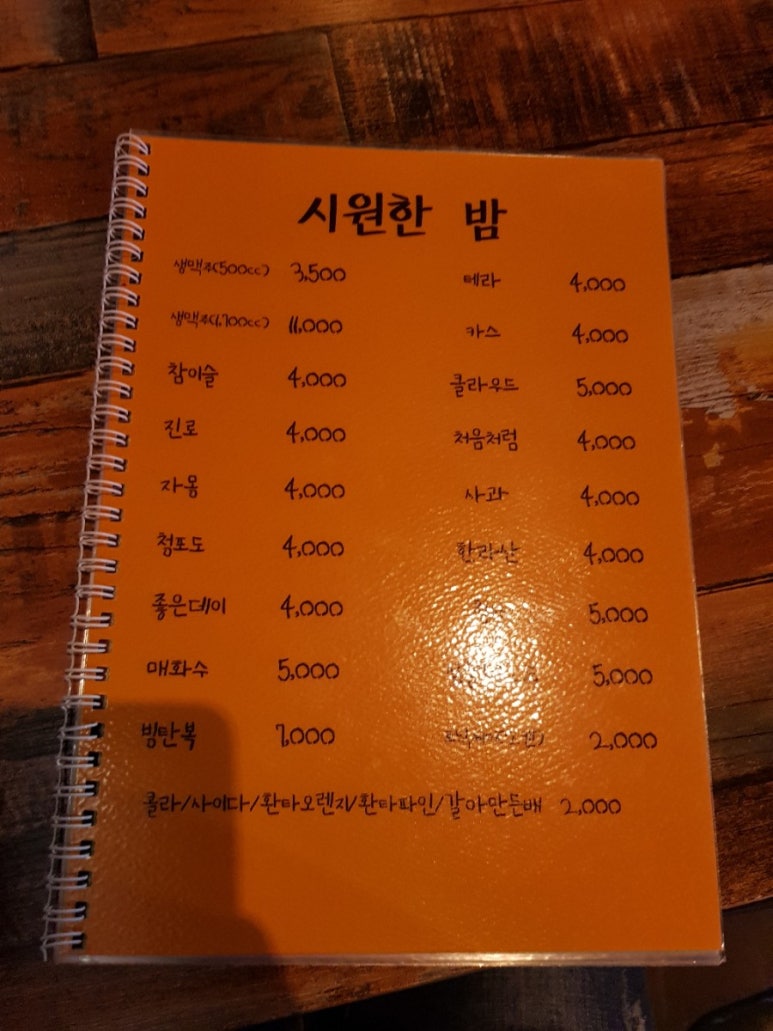 시원한 밤
생맥주(500cc) 3,500 테라 4,000
생맥주(1,700cc) 11,000 카스 4,000
참이슬 4,000 클라우드 5,000
진로 4,000 처음처럼 4,000
자몽 4,000 사과 4,000
청포도 4,000 한라산 4,000
좋은데이 4,000 5,000
매화수 5,000 5,000
빙탄복 7,000 2,000
콜라/사이다/환타오렌지/환타파인/갈아만든배 2,000